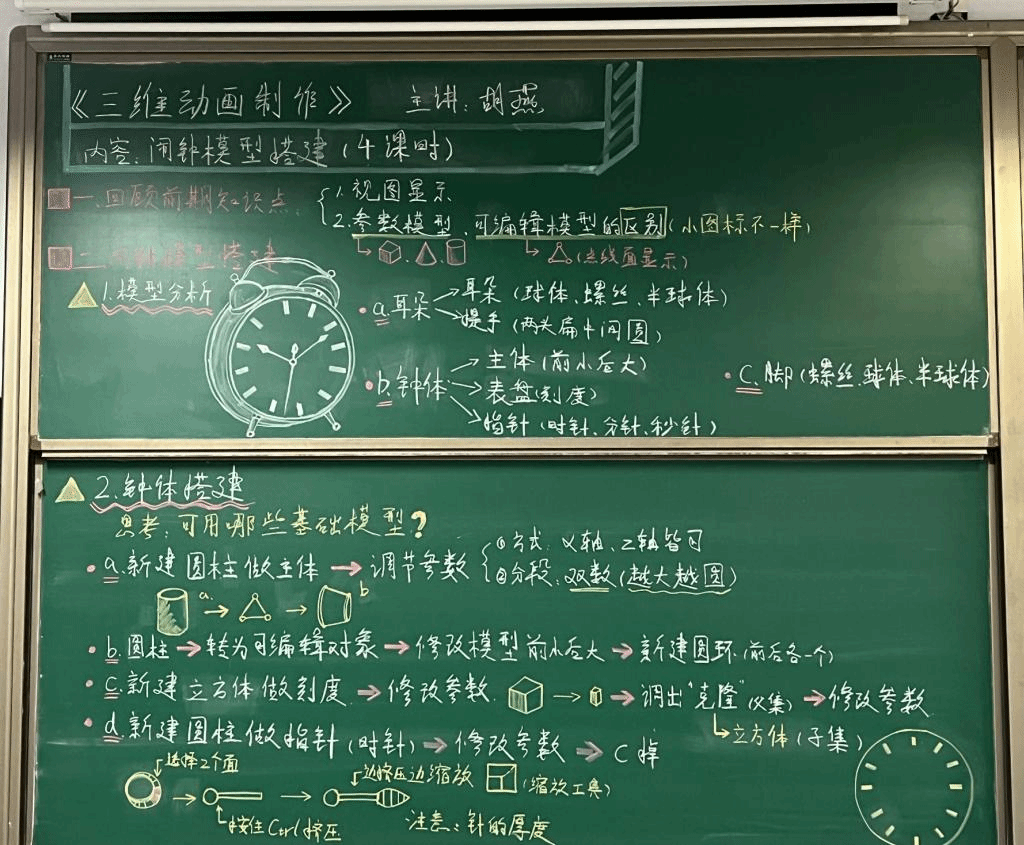 《三维动画制作》 主讲:胡燕
内容:闹钟模型搭建(4课时)
一.回顾前期知识点:
1.视图显示
2.参数模型、可编辑模型的区别(小图标不一样)
(点线面显示)
二.闹钟模型搭建
1.模型分析
a.耳朵
耳朵(球体、螺丝、半球体)
提手(两头扁中间圆)
b.钟体
主体(前小后大)
表盘(刻度)
指针(时针、分针、秒针)
C.脚(螺丝.球体、半球体)
2.钟体搭建
思考:可用哪些基础模型?
a.新建圆柱做主体→调节参数
①方式:X轴、Z轴皆可
②分段:双数(越大越圆)
a. → → b
b.圆柱→转为可编辑对象→修改模型前小后大→新建圆环(前后各一个)
c.新建立方体做刻度→修改参数. → →调出"克隆"(父集)→修改参数
立方体(子集)
d.新建圆柱做指针(时针)→修改参数→C掉
选择2个面
边挤压边缩放
(缩放工具)
按住Ctrl挤压
注意:针的厚度